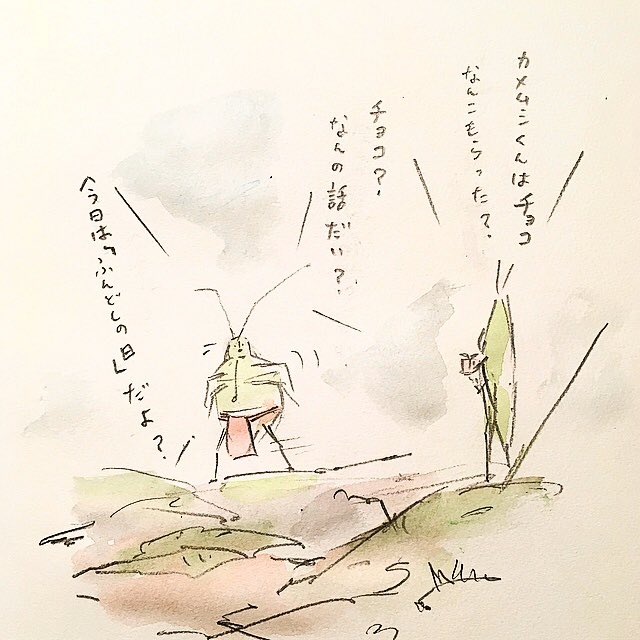 カメムシくんはチョコ
なんこもらった？
チョコ？
なんの話だい？
今日は「ふんどしの日」だよ？